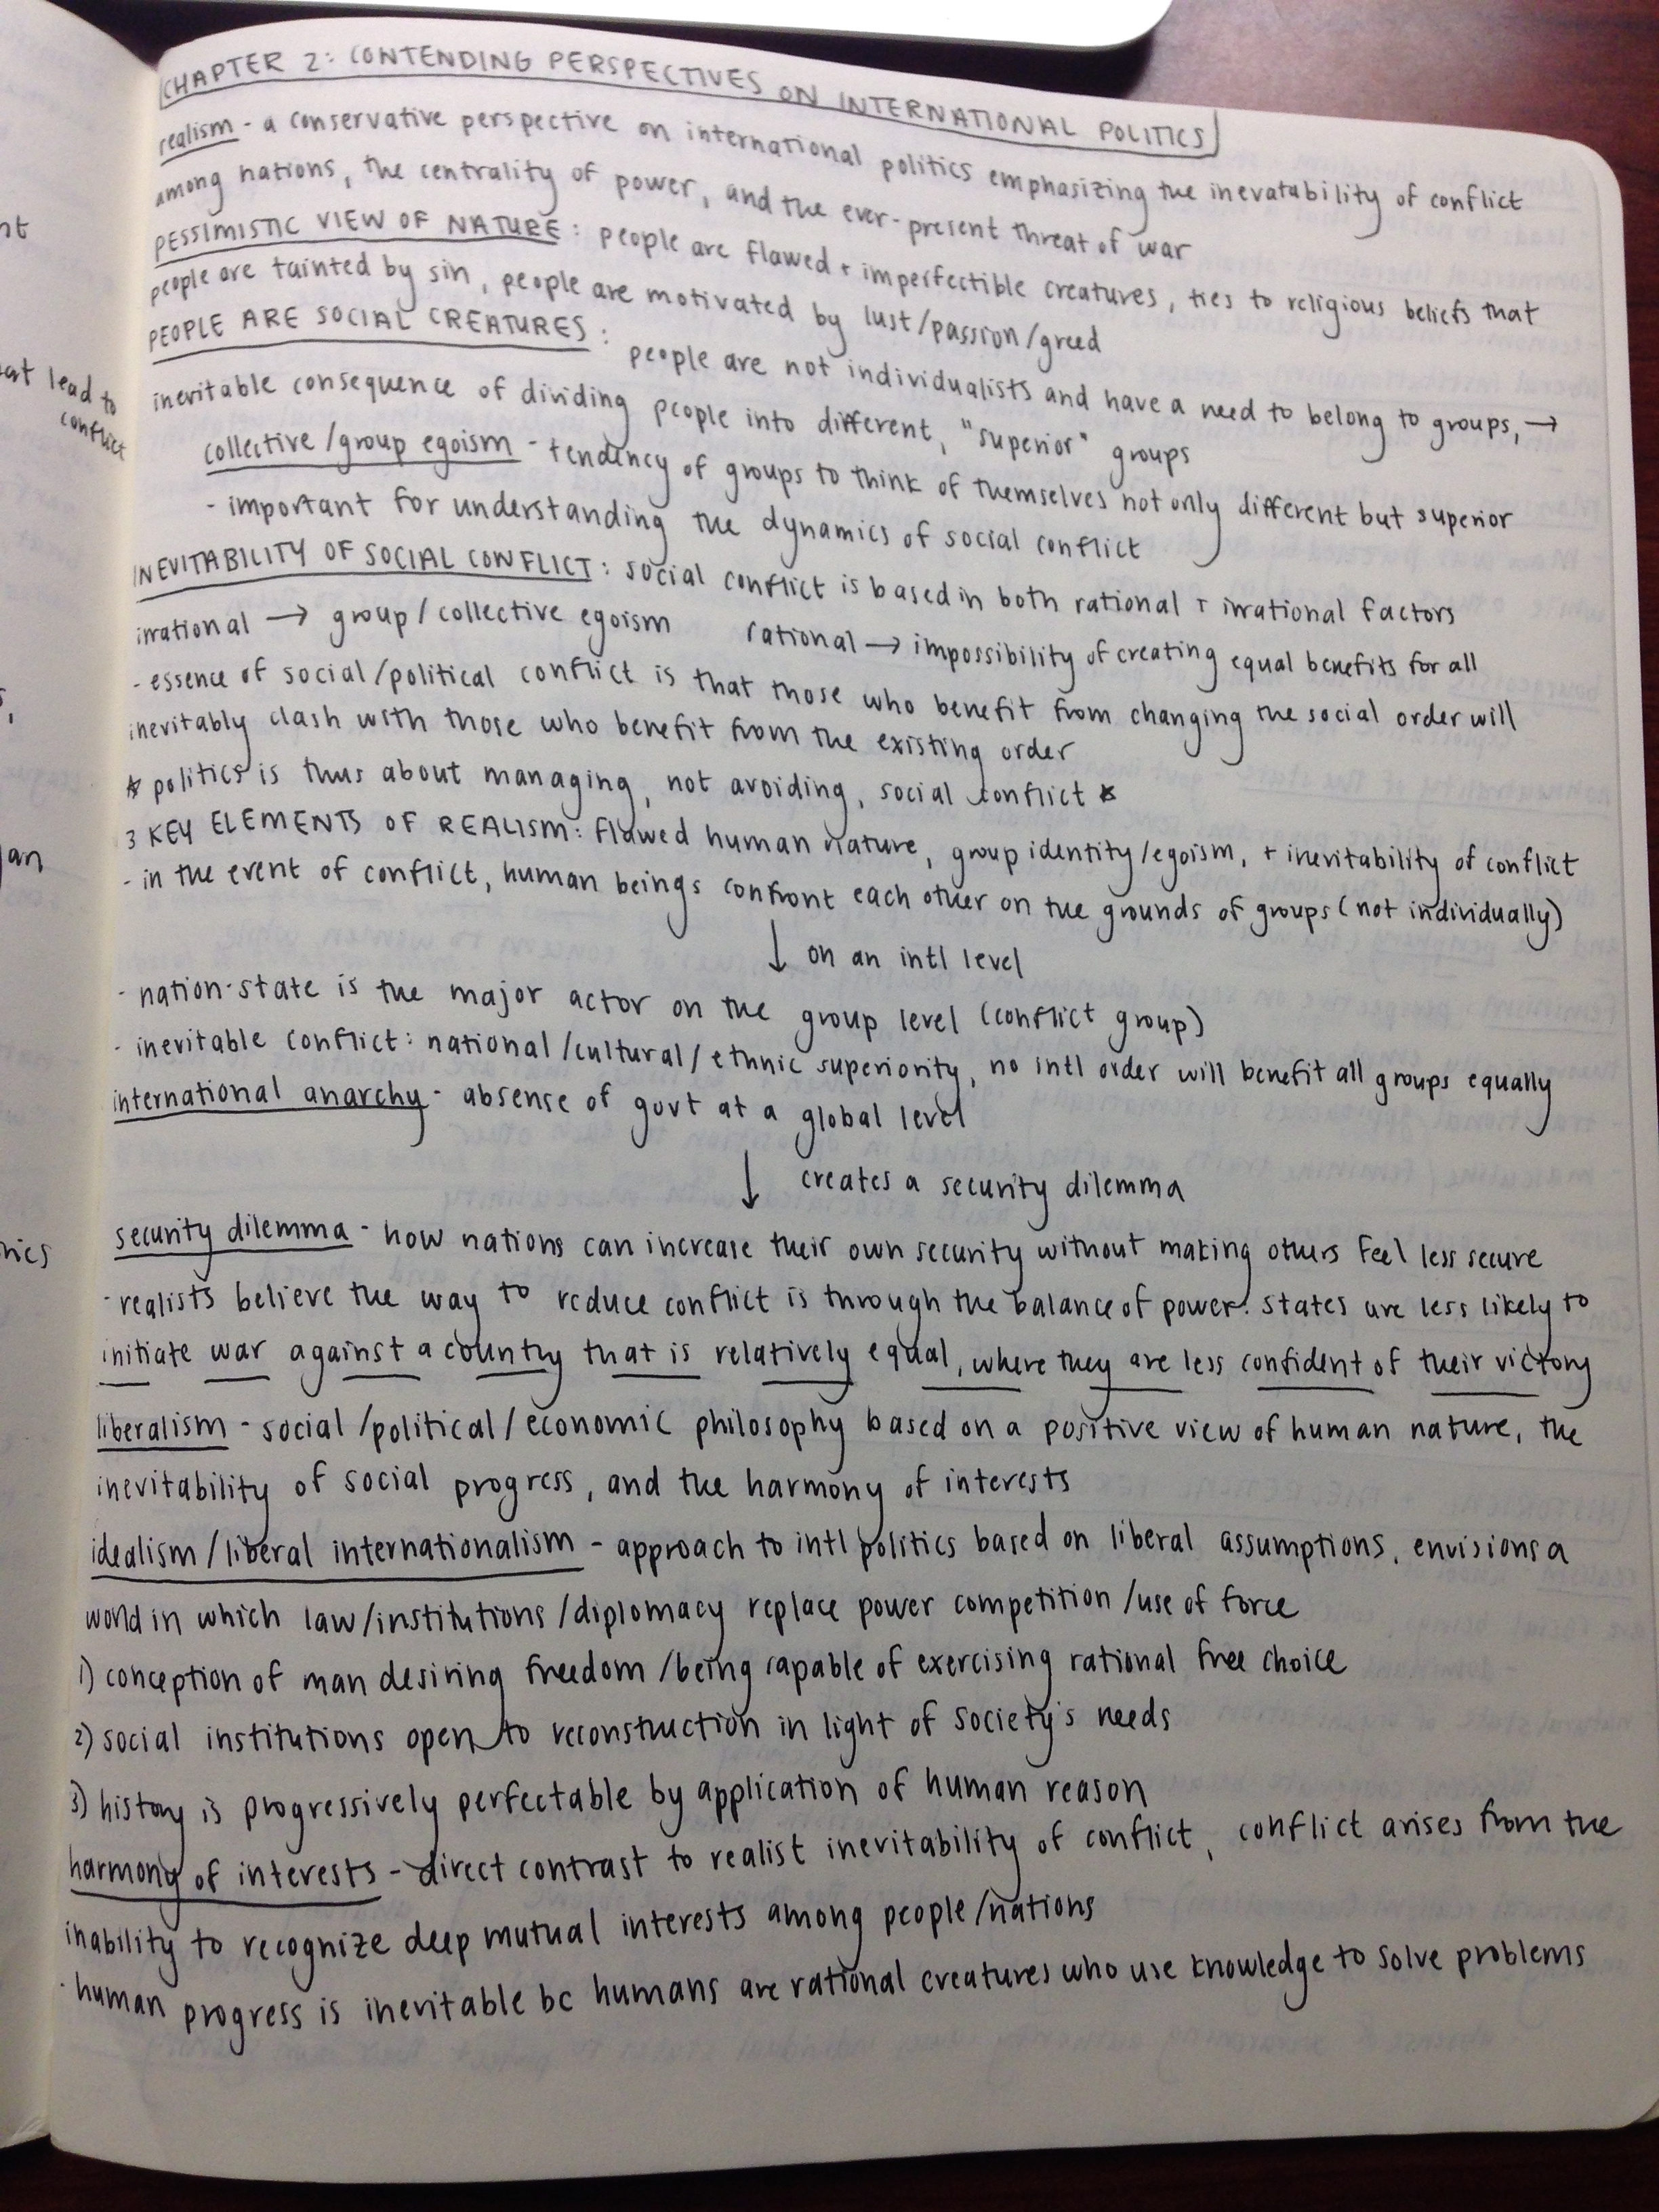 CHAPTER 2: CONTENDING PERSPECTIVES ON INTERNATIONAL POLITICS
realism - a conservative perspective on international politics emphasizing the inevatability of conflict
among nations, the centrality of power, and the ever-present threat of war
PESSIMISTIC VIEW OF NATURE: people are flawed + imperfectible creatures, ties to religious beliefs that
people are tainted by sin, people are motivated by lust/passion/greed
PEOPLE ARE SOCIAL CREATURES: people are not individualists and have a need to belong to groups, →
inevitable consequence of dividing people into different, "superior" groups
collective/group egoism - tendency of groups to think of themselves not only different but superior
- important for understanding the dynamics of social conflict
INEVITABILITY OF SOCIAL CONFLICT: social conflict is based in both rational + irrational factors
irrational → group/collective egoism rational → impossibility of creating equal benefits for all
- essence of social/political conflict is that those who benefit from changing the social order will
inevitably clash with those who benefit from the existing order
* politics is thus about managing, not avoiding, social conflict *
3 KEY ELEMENTS OF REALISM: flawed human nature, group identity/egoism, + inevitability of conflict
- in the event of conflict, human beings confront each other on the grounds of groups (not individually)
↓ on an intl level
- nation-state is the major actor on the group level (conflict group)
- inevitable conflict: national/cultural/ethnic superiority, no intl order will benefit all groups equally
international anarchy - absense of govt at a global level
↓ creates a security dilemma
security dilemma - how nations can increase their own security without making others feel less secure
- realists believe the way to reduce conflict is through the balance of power. states are less likely to
initiate war against a country that is relatively equal, where they are less confident of their victory
liberalism - social/political/economic philosophy based on a positive view of human nature, the
inevitability of social progress, and the harmony of interests
idealism/liberal internationalism - approach to intl politics based on liberal assumptions, envisions a
world in which law/institutions/diplomacy replace power competition/use of force
1) conception of man desiring freedom/being capable of exercising rational free choice
2) social institutions open to reconstruction in light of society's needs
3) history is progressively perfectable by application of human reason
harmony of interests - direct contrast to realist inevitability of conflict, conflict arises from the
inability to recognize deep mutual interests among people/nations
- human progress is inevitable bc humans are rational creatures who use knowledge to solve problems
lead to
conflict